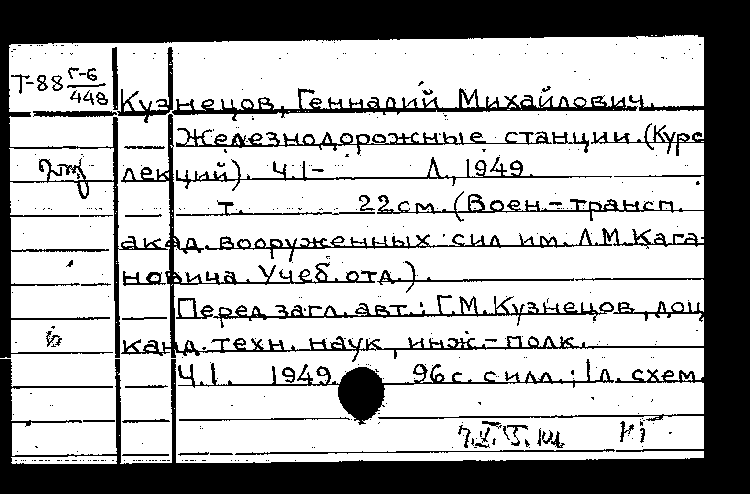 Т-88 Г-6/448
Кузнецов, Геннадий Михайлович.
Железнодорожные станции. (Курс
лекций). Ч.1- Л., 1949.
т. 22 см. (Воен.-трансп.
акад. вооруженных сил им. Л.М. Кага-
новича. Учеб. отд.).
Перед загл. авт.: Г.М. Кузнецов, доц.
канд. техн. наук, инж.-полк.
Ч.1. 1949. 96 с. с илл.; 1 л. схем.